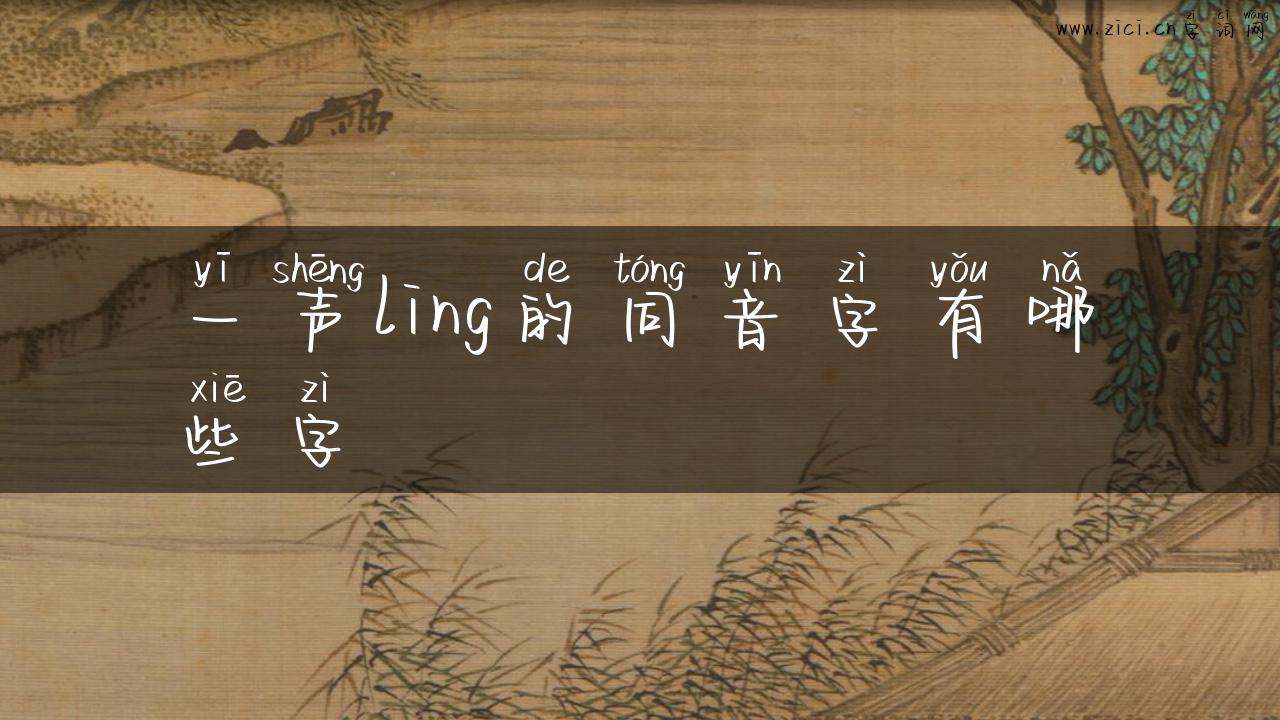 zì cí wǎng
www.zici.cn字词网
yī shēng de tóng yīn zì yǒu nǎ
一声ling的同音字有哪
xiē zì
些字